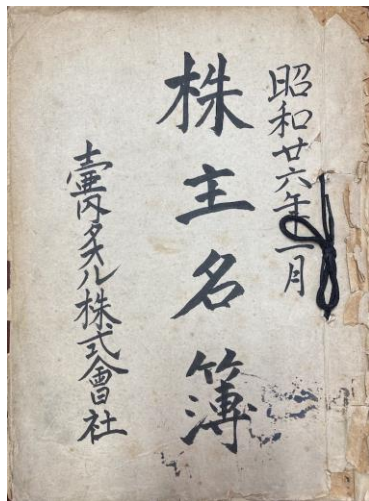 昭和廿六年一月
株主名簿
壷内タオル株式會社